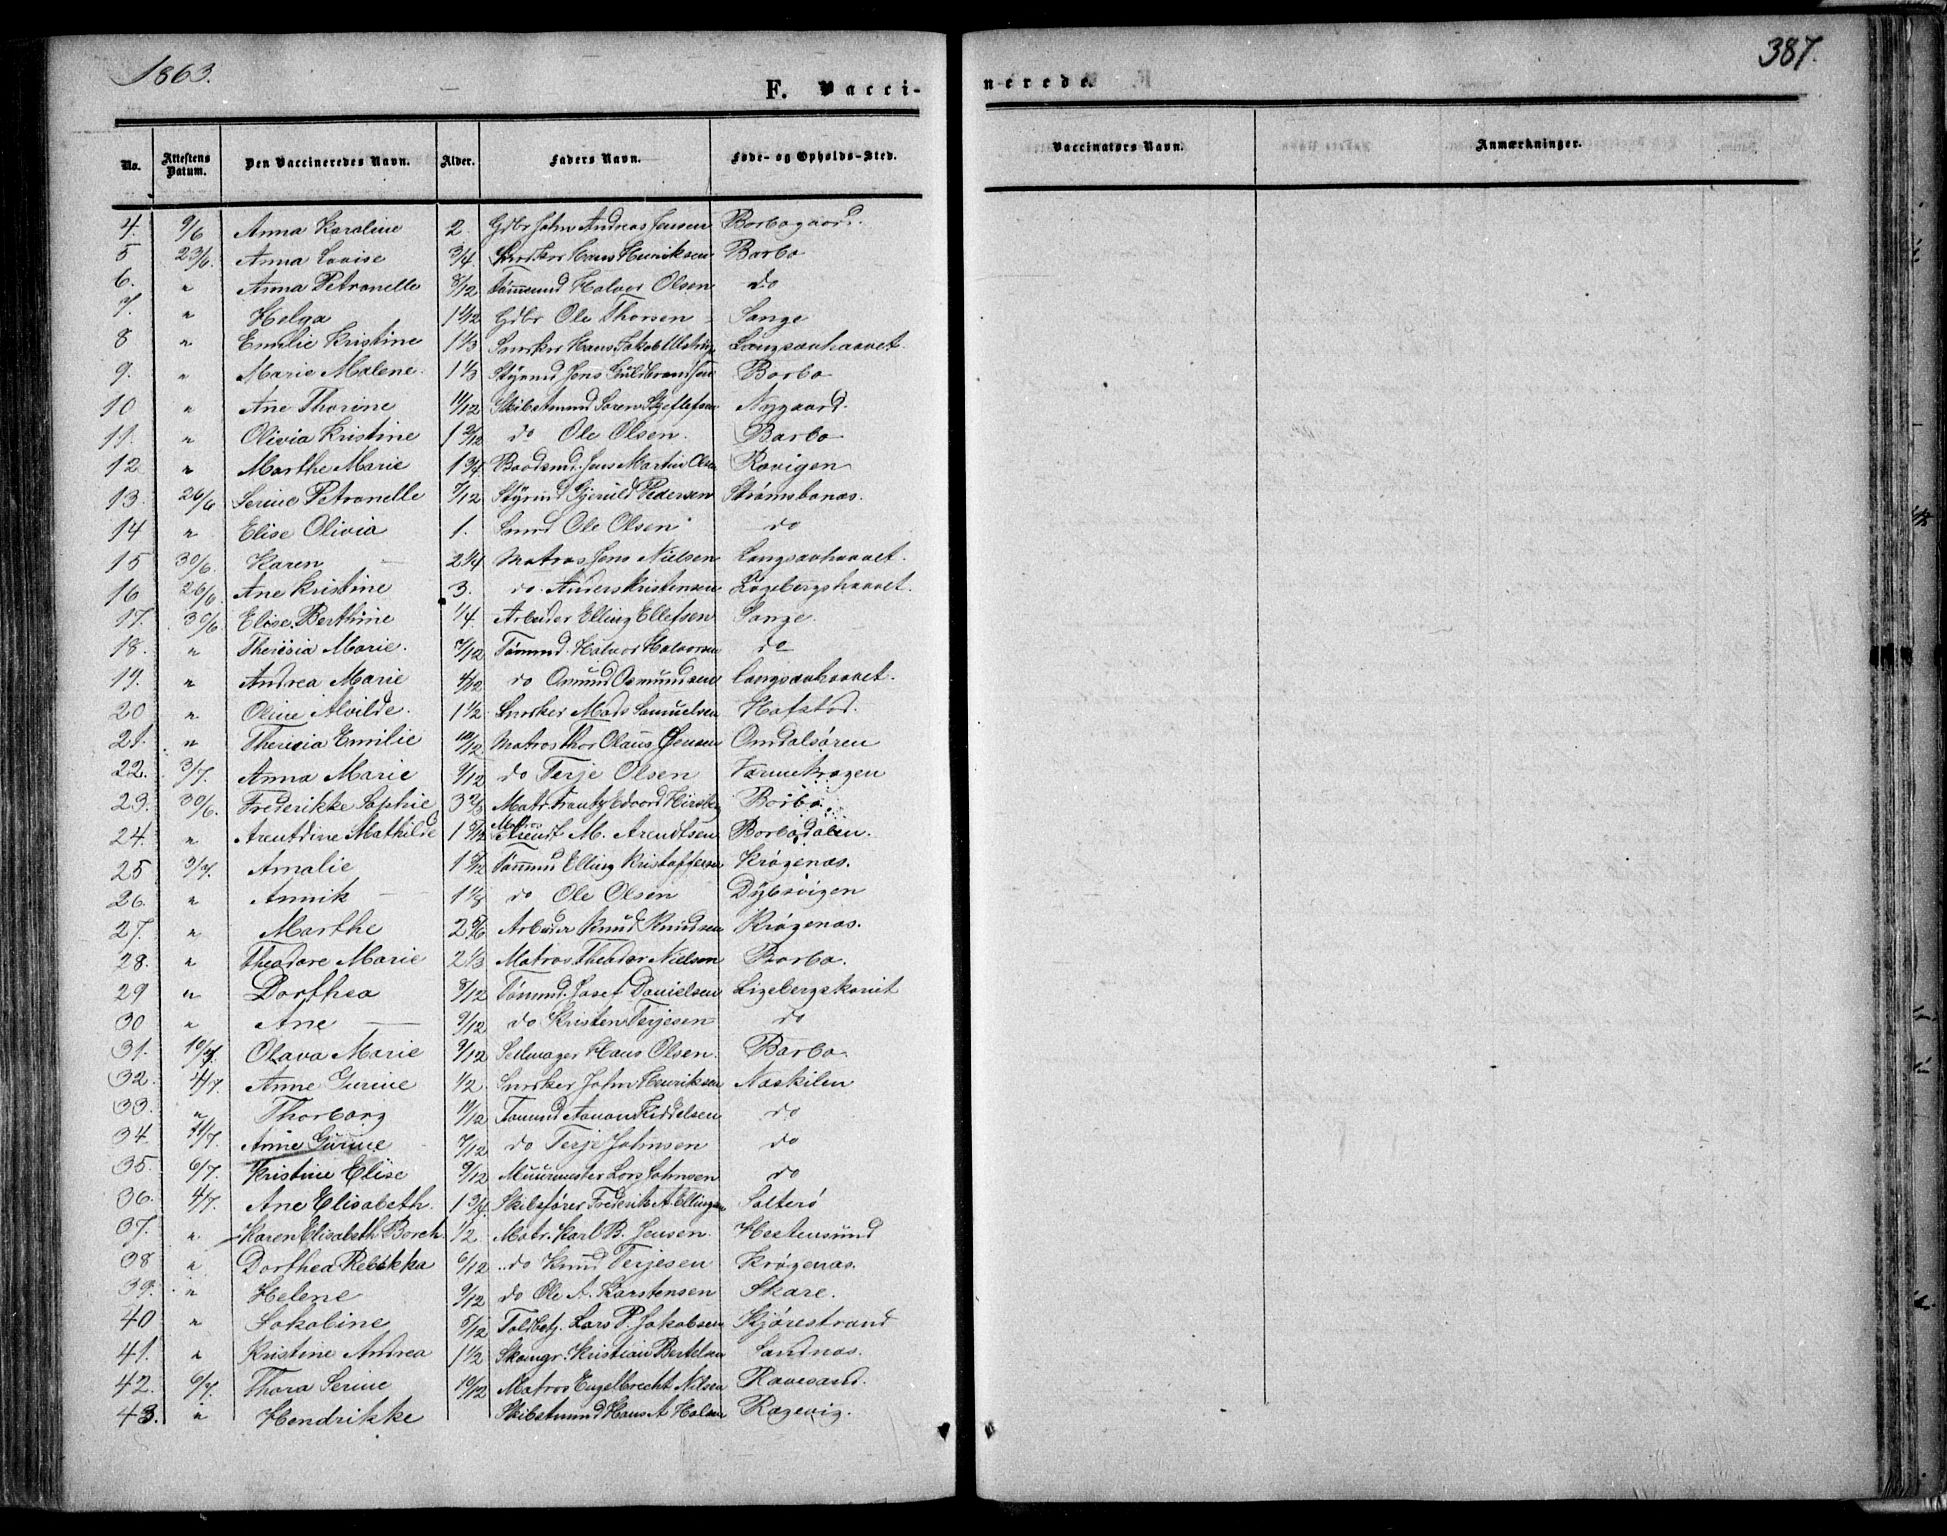 1863.
387.
F. Vacci-
nerede.
No. Attestens Datum. Den Vaccineredes Navn. Alder. Faders Navn. Føde- og Opholds-Sted. Vaccinators Navn. Anmærkninger.
4. 9/6 Anna Karoline 2. Gdbr John Andreas Jensen Barbogaard.
5 23/6. Anna Lovise 3/4 Snedker Hans Henriksen Barbo
6. " Anna Petronelle 8/12 Tømmermd Halvor Olsen do
7. " Helga 1 1/12 Gdbr Ole Thorsen Sange
8 " Emilie Kristine 1 1/3 Snedker Hans Jakob Langsævhaavet.
9. " Marie Malene. 1 1/3 Styrmd Jens Guldbrandsen Barbo
10 " Ane Thorine 11/12 Skibstmmd Søren Nygaard.
11. " Olivia Kristine 1 2/12 do Ole Olsen. Barbo
12 " Marthe Marie 1 3/4 Baadsmd. Jens Martin Olsen Ravigen
13. 26/6 Serine Petronelle 7/12 Styrmd Gjeruld Pedersen Strømsbonæs.
14 " Elise Olivia 1. Ole Olsen do
15 30/6. Karen — 2 1/4 Matros Jens Nielsen Langsævhaavet.
16 26/6. Ane Kristine 3. do. Anders Kristensen Løgebergshaavet.
17. 30/6 Elise Berthine 1/4 Arbeider Elling Ellefsen Sange.
18. " Theresia Marie. 7/12 Tømmd. Halvor Halvorsen do
19. " Andrea Marie 4/12 do Osmund Osmundsen Langsævhaavet.
20 " Oline Alvilde. 1 1/2 Snedker Mads Samuelsen Hafstad.
21. " Theresia Emilie 10/12 Matros Thor Olaus Jensen Omdalsøren
22. 3/7. Anna Marie 9/12 do Terje Olsen Værnekragen
23. 30/6. Frederikke Sophie 3 2/3 Matr. Frantz Edvard Barbo.
24. " Arentdine Mathilde 1 5/12 Matros Arendt M. Arendtsen Barbodalen.
25 3/7. Amalie 1 5/12 Tømmd Elling Kristoffersen Krøgenæs.
26. " Annik — 1 1/3 do Ole Olsen Dybsvigen
27. " Marthe 2 5/6 Arbeider Knud Knudsen Krøgenæs.
28. " Theodore Marie 2 1/3 Matros Theodor Nielsen Barbo.
29 " Dorthea 8/12 Tømmd. Josef Danielsen
30 " Ane — 9/12 do Kristen Terjesen do
31. 10/7. Olava Marie 9/12 Seilmager Hans Olsen. Barbo.
32. 4/7. Anne Gurine 1/2 Snedker John Henriksen Næskilen
33. " Thorborg 11/12 Tømmd Aanon do
34. 11/7. Anne Gurine 7/12 do Terje Johnsen do
35. 6/7. Kristine Elise 9/12 Muurmester Lars Johnsen do
36. 4/7. Ane Elisabeth. 1 3/4 Skibsfører Frederik A. Ellingsen Salterø
37. " Karen Elisabeth Borch. 1/2. Matr. Karl B. Jensen. Hestensund
38 " Dorthea Rebekka 6/12 do Knud Terjesen Krøgenæs.
39. " Helene 9/12 do Ole A. Karstensen Skare.
40 " Jakobine 5/12 Toldbetj. Lars P. Jakobsen Kjørestrand
41. " Kristine Andrea 1 1/2 Kristian Bertelsen Sandnæs.
42. 6/7. Thora Serine 10/12 Matros Engelbrecht Nilsen Ravesand.
43. " Hendrikke Skibstmmd Hans A Holm Rægevig.